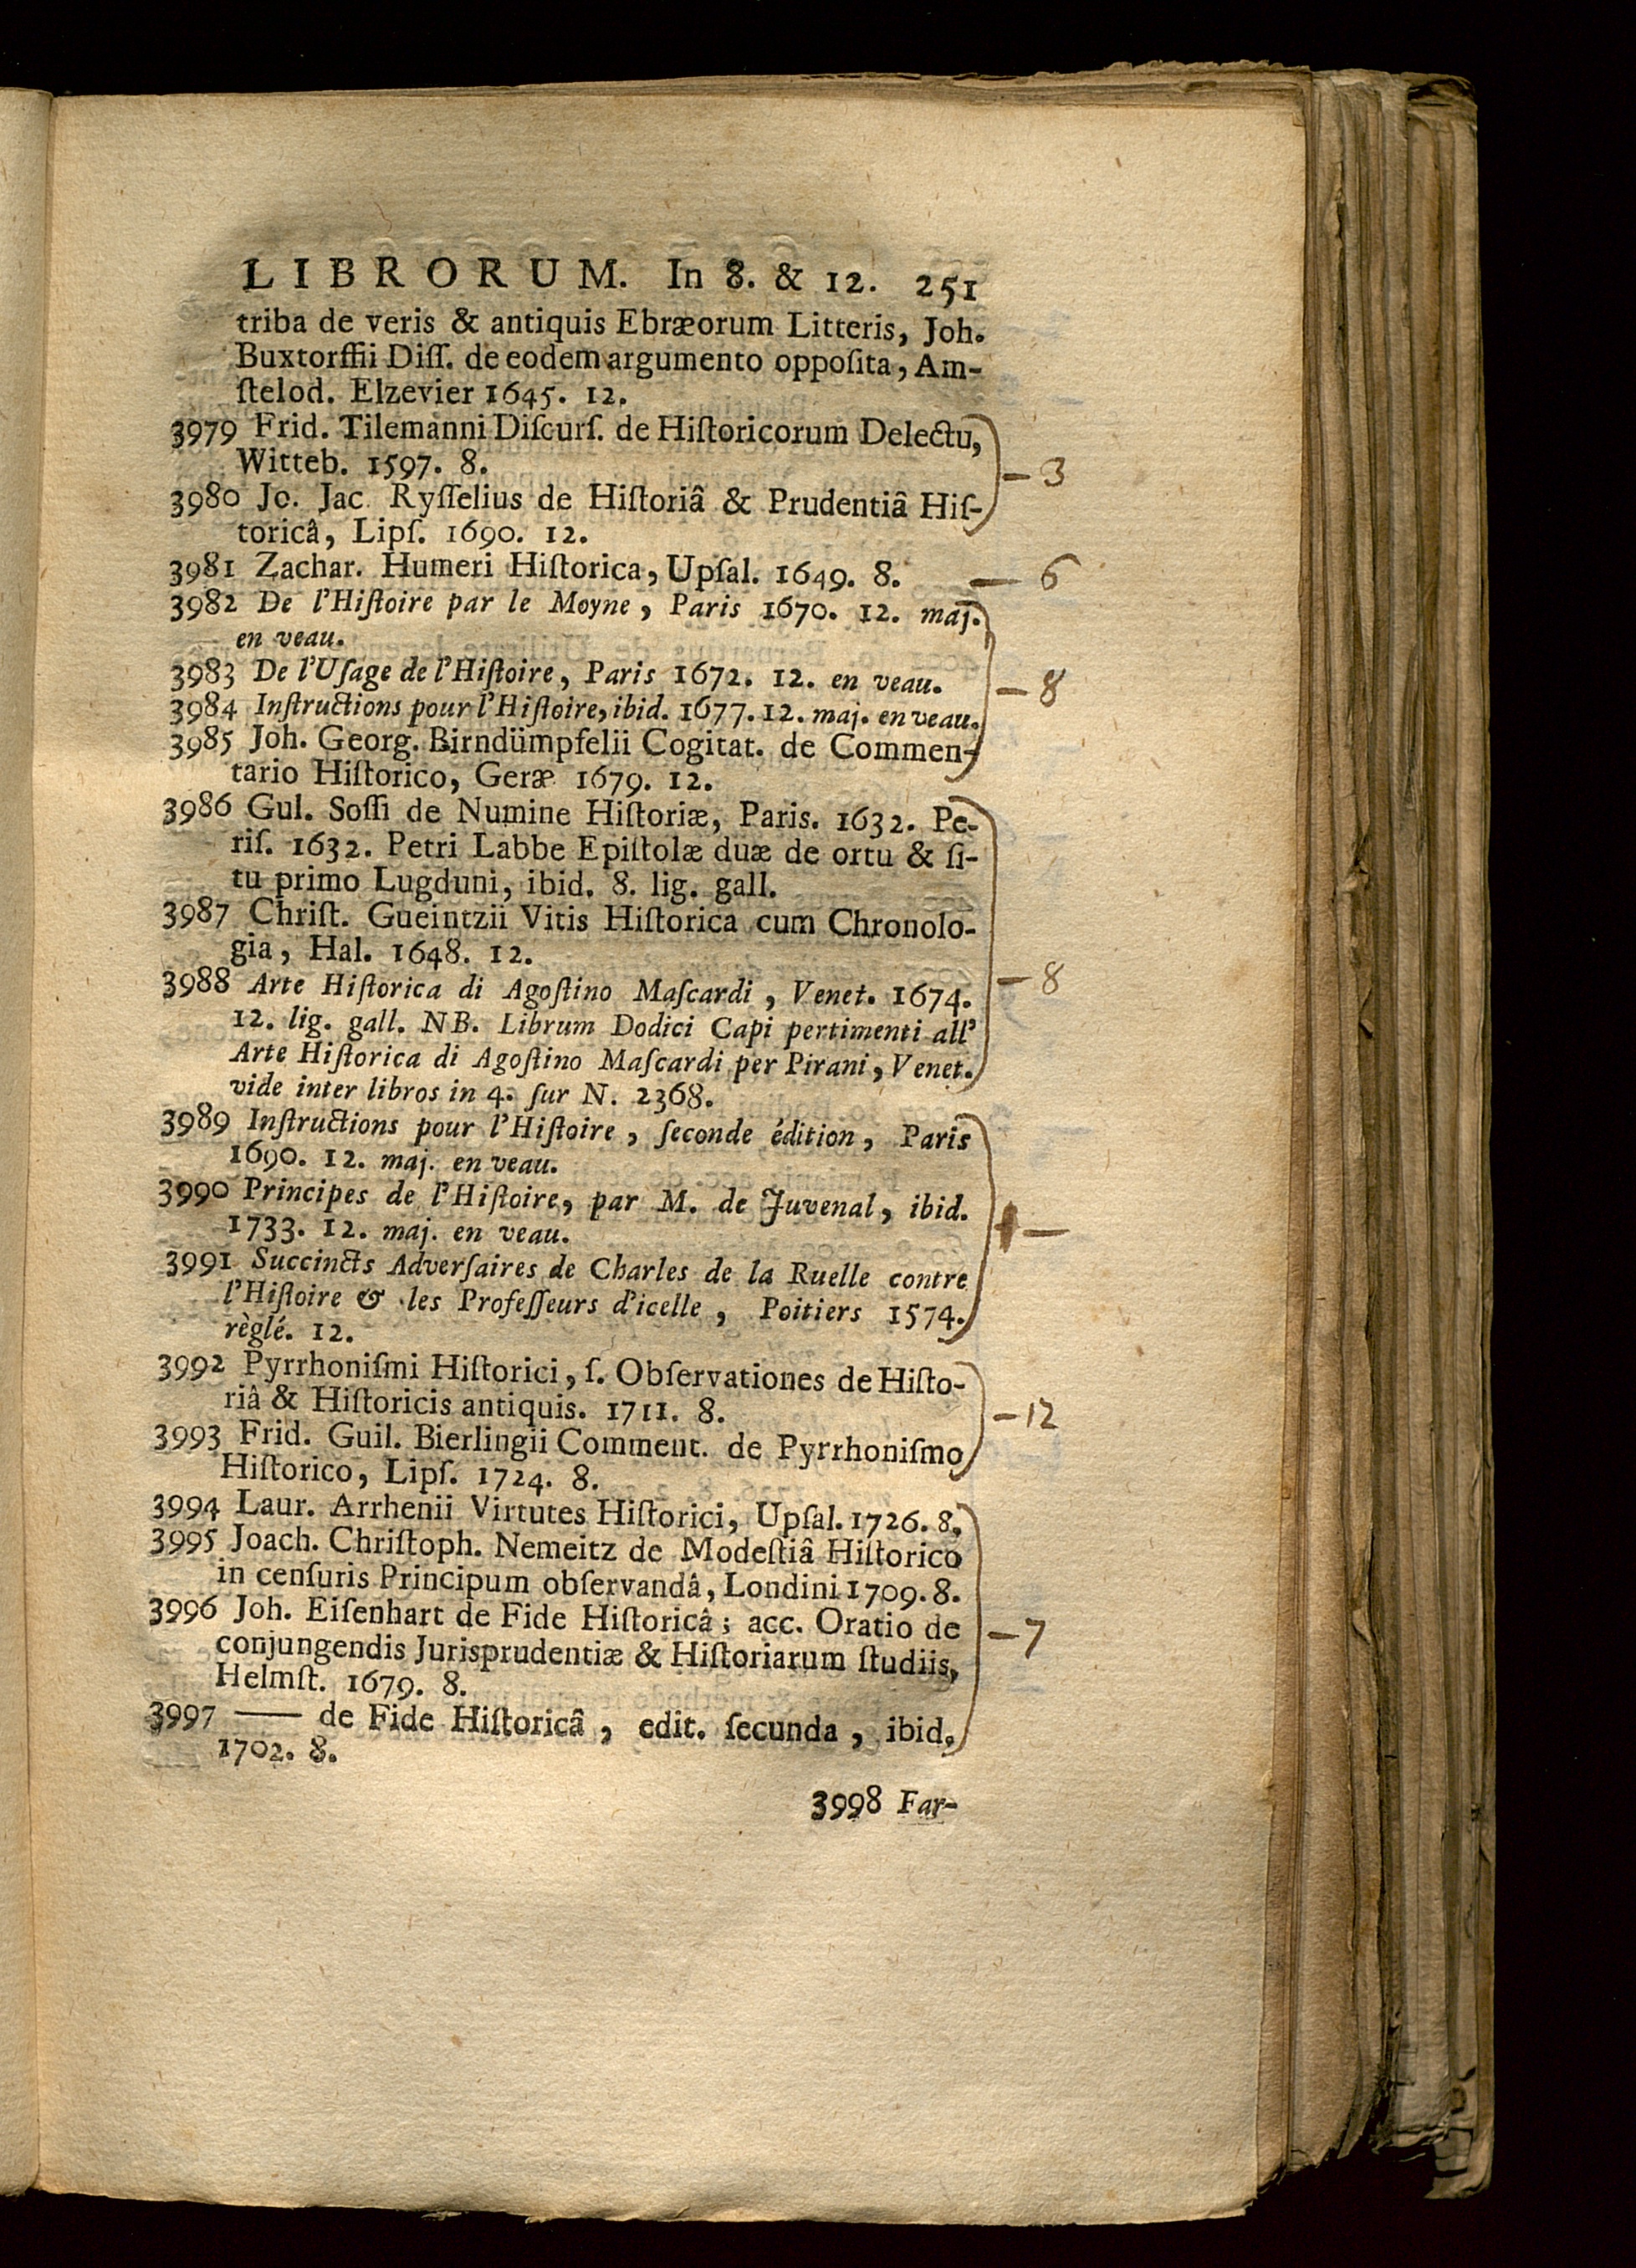 LIBRORUM. In 8. & 12. 251
triba de veris & antiquis Ebræorum Litteris, Joh.
Buxtorffii Diſſ. de eodem argumento oppoſita, Am-
ſtelod. Elzevier 1645. 12.
3979 Frid. Tilemanni Diſcurſ. de Hiſtoricorum Delectu,
Witteb. 1597. 8.
- 3
3980 Jo. Jac. Ryſſelius de Hiſtoriâ & Prudentiâ Hiſ-
toricâ, Lipſ. 1690. 12.
3981 Zachar. Humeri Hiſtorica, Upſal. 1649. 8. — 6
3982 De l'Hiſtoire par le Moyne, Paris 1670. 12. maj.
en veau.
3983 De l'Uſage de l'Hiſtoire, Paris 1672. 12. en veau. - 8
3984 Inſtructions pour l'Hiſtoire, ibid. 1677. 12. maj. en veau.
3985 Joh. Georg. Birndümpfelii Cogitat. de Commen-
tario Hiſtorico, Geræ 1679. 12.
3986 Gul. Soſſi de Numine Hiſtoriæ, Paris. 1632. Pe-
riſ. 1632. Petri Labbe Epiſtolæ duæ de ortu & ſi-
tu primo Lugduni, ibid. 8. lig. gall.
3987 Chriſt. Gueintzii Vitis Hiſtorica cum Chronolo-
gia, Hal. 1648. 12.
3988 Arte Hiſtorica di Agoſtino Maſcardi, Venet. 1674. - 8
12. lig. gall. NB. Librum Dodici Capi pertimenti all'
Arte Hiſtorica di Agoſtino Maſcardi per Pirani, Venet.
vide inter libros in 4. ſur N. 2368.
3989 Inſtructions pour l'Hiſtoire, ſeconde édition, Paris
1690. 12. maj. en veau.
3990 Principes de l'Hiſtoire, par M. de Juvenal, ibid.
1733. 12. maj. en veau.
3991 Succincts Adverſaires de Charles de la Ruelle contre
l'Hiſtoire & les Profeſſeurs d'icelle, Poitiers 1574.
règlé. 12.
3992 Pyrrhoniſmi Hiſtorici, ſ. Obſervationes de Hiſto-
riâ & Hiſtoricis antiquis. 1711. 8.
- 12
3993 Frid. Guil. Bierlingii Comment. de Pyrrhoniſmo
Hiſtorico, Lipſ. 1724. 8.
3994 Laur. Arrhenii Virtutes Hiſtorici, Upſal. 1726. 8.
3995 Joach. Chriſtoph. Nemeitz de Modeſtiâ Hiſtorico
in cenſuris Principum obſervandâ, Londini 1709. 8.
3996 Joh. Eiſenhart de Fide Hiſtoricâ; acc. Oratio de
- 7
conjungendis Jurisprudentiæ & Hiſtoriarum ſtudiis,
Helmſt. 1679. 8.
3997 —— de Fide Hiſtoricâ, edit. ſecunda, ibid.
1702. 8.
3998 Far-